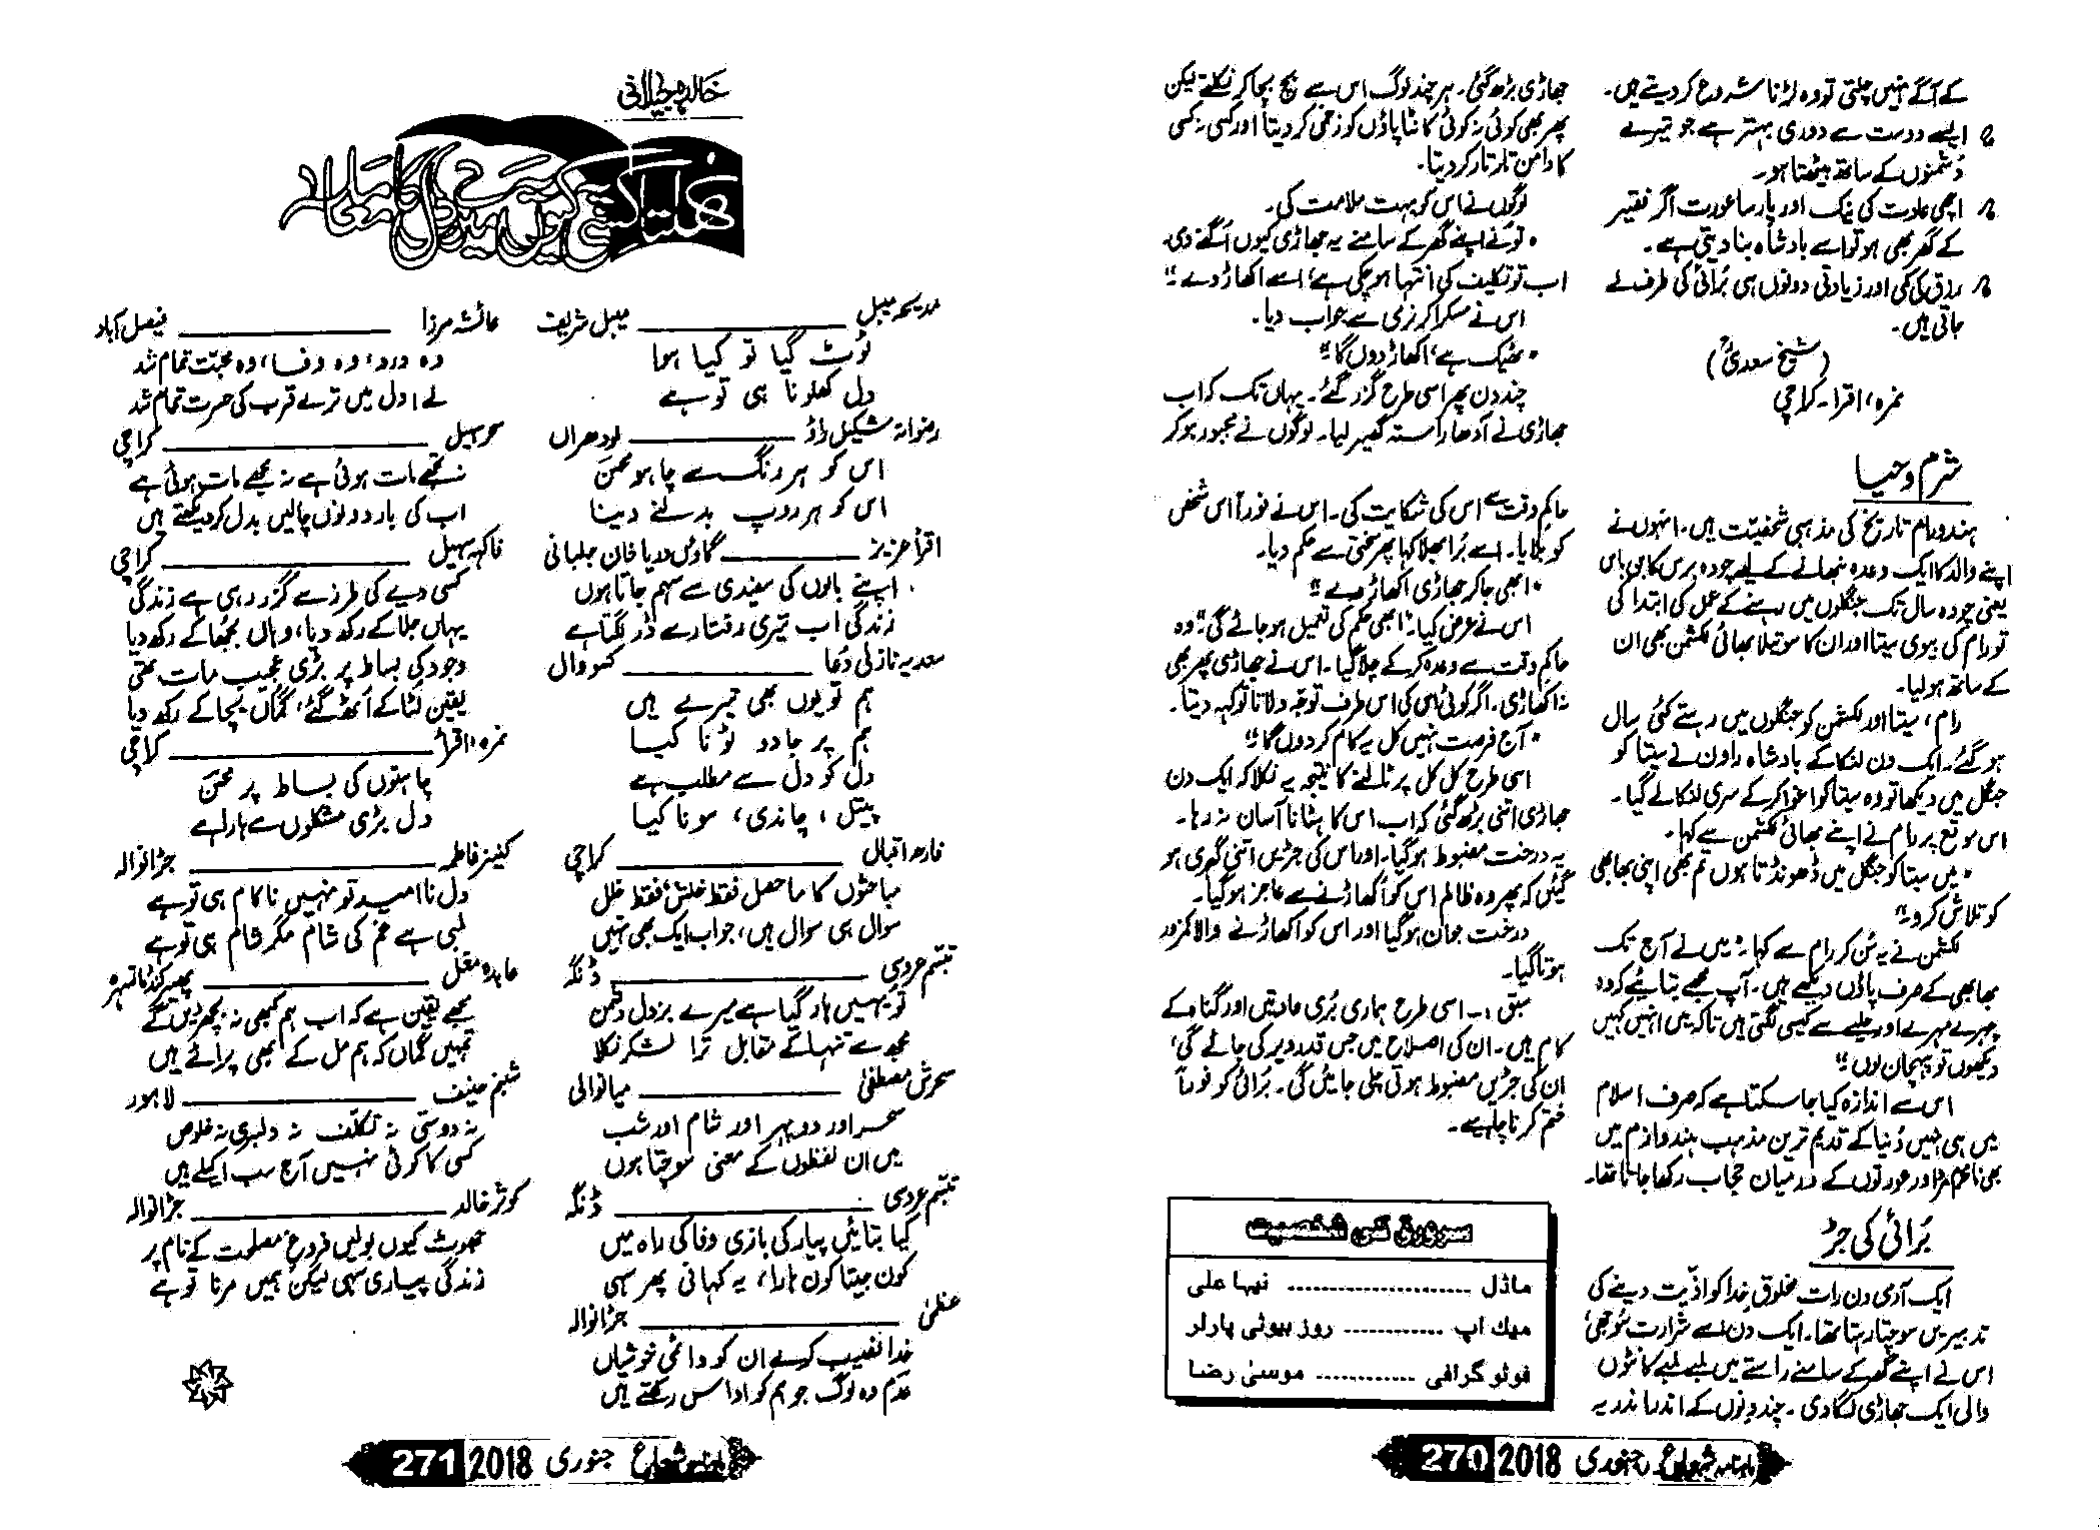 کے آگے نہیں چلتی تو وہ لڑنا شروع کر دیتے ہیں۔
ایسے دوست سے دوری بہتر ہے جو تیرے
دُشمنوں کے ساتھ بیٹھتا ہو۔
اچھی عادت کی نیک اور پارسا عورت اگر فقیر
کے گھر بھی ہو تو اسے بادشاہ بنا دیتی ہے۔
رزق کی کمی اور زیادتی دونوں ہی بُرائی کی طرف لے
جاتی ہیں۔
(شیخ سعدیؒ)
نمرہ، اقرا۔ کراچی
شرم و حیا
ہندو رام تاریخ کی مذہبی شخصیت ہیں۔ انہوں نے
اپنے والد کا ایک وعدہ نبھانے کے لیے چودہ برس کا بن باس
یعنی چودہ سال تک جنگلوں میں رہنے کے عمل کی ابتدا کی
تو رام کی بیوی سیتا اور ان کا سوتیلا بھائی لکشمن بھی ان
کے ساتھ ہو لیا۔
رام، سیتا اور لکشمن کو جنگلوں میں رہتے کئی سال
ہو گئے۔ ایک دن لنکا کے بادشاہ راون نے سیتا کو
جنگل میں دیکھا تو وہ سیتا کو اغوا کر کے سری لنکا لے گیا۔
اس موقع پر رام نے اپنے بھائی لکشمن سے کہا۔
"میں سیتا کو جنگل میں ڈھونڈتا ہوں تم بھی اپنی بھابھی
کو تلاش کرو۔"
لکشمن نے یہ سُن کر رام سے کہا۔ "میں نے آج تک
بھابھی کے صرف پاؤں دیکھے ہیں۔ آپ مجھے بتائیے کہ وہ
چہرے مہرے اور حلیے سے کیسی لگتی ہیں تاکہ میں انہیں کہیں
دیکھوں تو پہچان لوں۔"
اس سے اندازہ کیا جا سکتا ہے کہ صرف اسلام
میں ہی نہیں دُنیا کے قدیم ترین مذہب ہندوازم میں
بھی نامحرم مرد اور عورتوں کے درمیان حجاب رکھا جاتا تھا۔
بُرائی کی جڑ
ایک آدمی دن رات مخلوقِ خدا کو اذیت دینے کی
تدبیریں سوچتا رہتا تھا۔ ایک دن اسے شرارت سُوجھی،
اس نے اپنے گھر کے سامنے راستے میں لمبے لمبے کانٹوں
والی ایک جھاڑی لگا دی۔ چند دنوں کے اندر اندر یہ
جھاڑی بڑھ گئی۔ ہر چند لوگ اس سے بچ بچا کر نکلتے لیکن
پھر بھی کوئی نہ کوئی کانٹا پاؤں کو زخمی کر دیتا اور کسی نہ کسی
کا دامن تار تار کر دیتا۔
لوگوں نے اس کو بہت ملامت کی۔
"تو نے اپنے گھر کے سامنے یہ جھاڑی کیوں اُگنے دی۔
اب تو تکلیف کی انتہا ہو چکی ہے، اسے اکھاڑ دے۔"
اس نے مسکرا کر نرمی سے جواب دیا۔
"ٹھیک ہے، اکھاڑ دوں گا۔"
چند دن پھر اسی طرح گزر گئے۔ یہاں تک کہ اب
جھاڑی نے آدھا راستہ گھیر لیا۔ لوگوں نے مجبور ہو کر
حاکم وقت سے اس کی شکایت کی۔ اس نے فوراً اس شخص
کو بلایا۔ اسے بُرا بھلا کہا پھر سختی سے حکم دیا۔
"ابھی جا کر جھاڑی اکھاڑ دے۔"
اس نے عرض کیا۔ "ابھی حکم کی تعمیل ہو جائے گی۔" وہ
حاکم وقت سے وعدہ کر کے چلا گیا۔ اس نے جھاڑی پھر بھی
نہ اکھاڑی۔ اگر کوئی اس کی اس طرف توجہ دلاتا تو کہہ دیتا۔
"آج فرصت نہیں کل یہ کام کر دوں گا۔"
اسی طرح کل کل پر ٹالنے کا نتیجہ یہ نکلا کہ ایک دن
جھاڑی اتنی بڑھ گئی کہ اب اس کا ہٹانا آسان نہ رہا۔
یہ درخت مضبوط ہو گیا۔ اور اس کی جڑیں اتنی گہری ہو
گئیں کہ پھر وہ ظالم اس کو اکھاڑنے سے عاجز ہو گیا۔
درخت جوان ہو گیا اور اس کو اکھاڑنے والا کمزور
ہوتا گیا۔
سبق :۔ اسی طرح ہماری بُری عادتیں اور گناہ کے
کام ہیں۔ ان کی اصلاح میں جس قدر دیر کی جائے گی،
ان کی جڑیں مضبوط ہوتی چلی جائیں گی۔ بُرائی کو فوراً
ختم کرنا چاہیے۔
سرورق کی شخصیت
ماڈل ...................... نیہا علی
میک اپ ............ روز بیوٹی پارلر
فوٹو گرافی ............ موسیٰ رضا
ماہنامہ شعاع جنوری 2018 270
خالدہ جیلانی
کھلتا کسی پہ کیوں میرے دل کا معاملہ
مدیحہ میبل ________ میبل شریف
ٹوٹ گیا تو کیا ہوا
دل کھلونا ہی تو ہے
رضوانہ شکیل راؤ ________ لودھراں
اس کو ہر رنگ سے چاہو محسن
اس کو ہر روپ بدلنے دینا
اقرأ عزیز ________ گاؤں دریا خان جلبانی
اپنے بالوں کی سفیدی سے سہم جاتا ہوں
زندگی اب تیری رفتار سے ڈر لگتا ہے
سعدیہ نازلی دُعا ________ کسووال
ہم تو یوں بھی تیرے ہیں
ہم پر جادو ٹونا کیا
دل کو دل سے مطلب ہے
پیتل، چاندی، سونا کیا
فارحہ اقبال ________ کراچی
مباحثوں کا ماحصل فقط خلش، فقط خلل
سوال ہی سوال ہیں، جواب ایک بھی نہیں
تبسم عروسی ________ ڈنگہ
تو یہیں ہار گیا ہے میرے بزدل دشمن
مجھ سے تنہا کے مقابل ترا لشکر نکلا
سحرش مصطفیٰ ________ میانوالی
سحر اور دوپہر اور شام اور شب
میں ان لفظوں کے معنی سوچتا ہوں
تبسم عروسی ________ ڈنگہ
کیا بتائیں پیار کی بازی وفا کی راہ میں
کون جیتا کون ہارا، یہ کہانی پھر سہی
عظمیٰ ________ جڑانوالہ
خدا نصیب کرے ان کو دائمی خوشیاں
عدم وہ لوگ جو ہم کو اداس رکھتے ہیں
عائشہ مرزا ________ فیصل آباد
وہ درد، وہ وفا، وہ محبت تمام شد
لے! دل میں ترے قرب کی حسرت تمام شد
سحر سہیل ________ کراچی
نہ تجھے مات ہوئی ہے نہ مجھے مات ہوئی ہے
اب کی بار دونوں چالیں بدل کر دیکھتے ہیں
فاکہہ سہیل ________ کراچی
کسی دیے کی طرز سے گزر رہی ہے زندگی
یہاں جلا کے رکھ دیا، وہاں بجھا کے رکھ دیا
وجود کی بساط پر بڑی عجیب مات تھی
یقین لٹا کے اُٹھ گئے، گماں بچا کے رکھ دیا
نمرہ، اقرأ ________ کراچی
چاہتوں کی بساط پر محسن
دل بڑی مشکلوں سے ہارا ہے
کنیز فاطمہ ________ جڑانوالہ
دل نا امید تو نہیں ناکام ہی تو ہے
لمبی ہے غم کی شام مگر شام ہی تو ہے
عابدہ مغل ________
مجھے یقین ہے کہ اب ہم کبھی نہ بچھڑیں گے
تمہیں گماں کہ ہم مل کے بھی پرائے ہیں
شبنم حنیف ________ لاہور
نہ دوستی نہ تکلف نہ دلبری نہ خلوص
کسی کا کوئی نہیں آج سب اکیلے ہیں
کوثر خالد ________ جڑانوالہ
جھوٹ کیوں بولیں فروغ مصلحت کے نام پر
زندگی پیاری سہی لیکن ہمیں مرنا تو ہے
ماہنامہ شعاع جنوری 2018 271